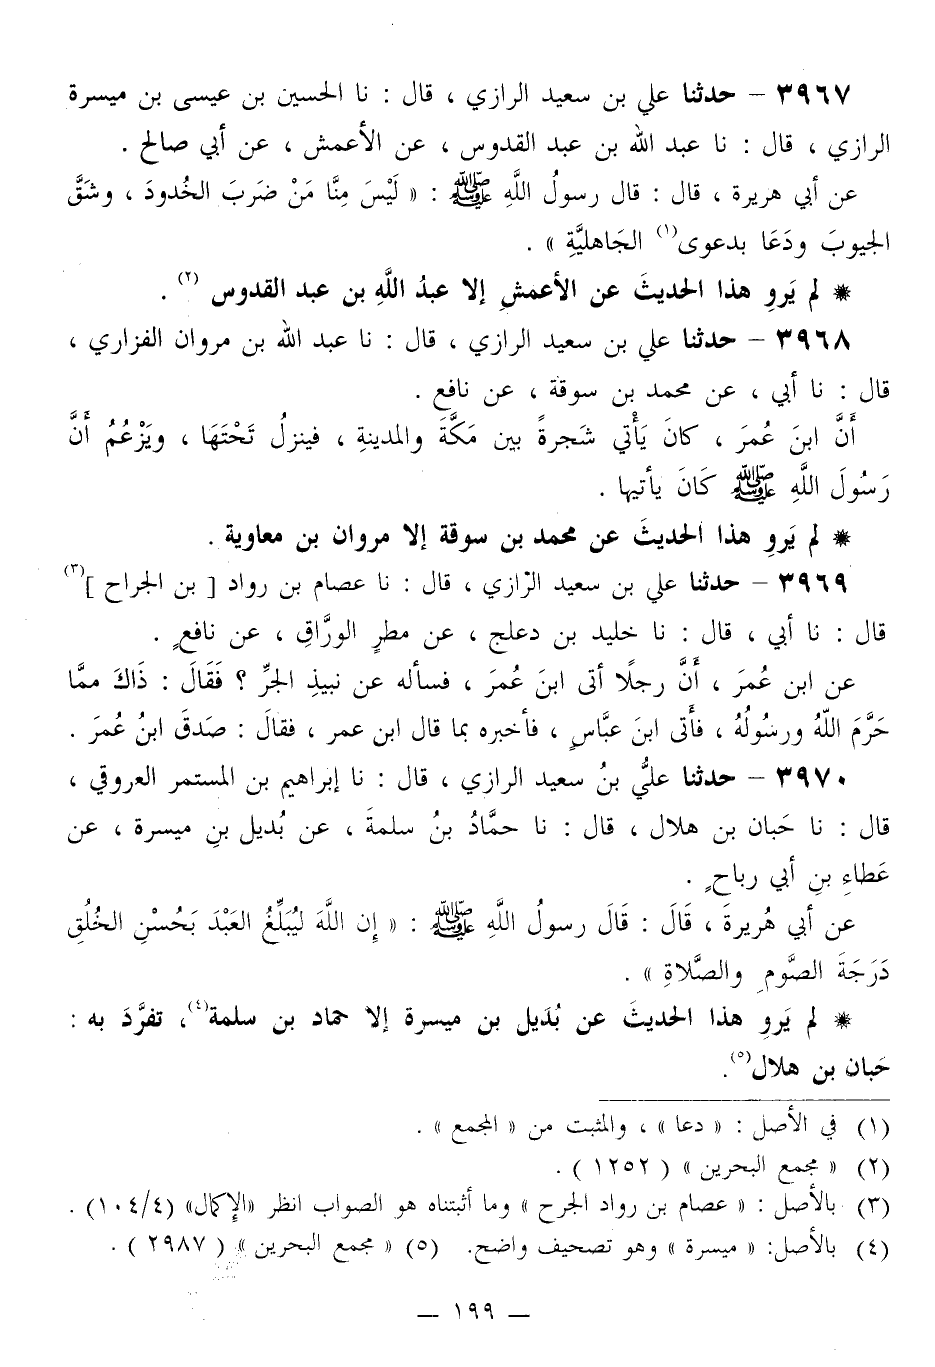 ٣٩٦٧ – حدثنا علي بن سعيد الرازي ، قال : نا الحسين بن عيسى بن ميسرة
الرازي ، قال : نا عبد الله بن عبد القدوس ، عن الأعمش ، عن أبي صالح .
عن أبي هريرة ، قال : قال رسولُ اللَّهِ ﷺ : « لَيْسَ مِنَّا مَنْ ضَرَبَ الخُدودَ ، وشَقَّ
الجيوبَ ودَعَا بدعوى(١) الجَاهليَّةِ » .
* لم يَروِ هذا الحديثَ عن الأعمشِ إلا عبدُ اللَّهِ بن عبد القدوس (٢) .
٣٩٦٨ – حدثنا علي بن سعيد الرازي ، قال : نا عبد الله بن مروان الفزاري ،
قال : نا أبي ، عن محمد بن سوقة ، عن نافع .
أَنَّ ابنَ عُمرَ ، كانَ يَأْتي شَجرةً بين مَكَّةَ والمدينةِ ، فينزلُ تَحْتَهَا ، ويَزْعُمُ أَنَّ
رَسُولَ اللَّهِ ﷺ كَانَ يأتيها .
* لم يَروِ هذا الحديثَ عن محمد بن سوقة إلا مروان بن معاوية .
٣٩٦٩ – حدثنا علي بن سعيد الرّازي ، قال : نا عصام بن رواد [ بن الجراح ](٣)
قال : نا أبي ، قال : نا خليد بن دعلج ، عن مطرٍ الورَّاقِ ، عن نافعٍ .
عن ابن عمرَ ، أَنَّ رجلًا أتى ابنَ عُمرَ ، فسأله عن نبيذِ الجرِّ ؟ فَقَالَ : ذَاكَ ممَّا
حَرَّمَ اللّهُ ورسُولُهُ ، فأَتى ابنَ عبَّاسٍ ، فأخبره بما قال ابن عمر ، فقالَ : صَدقَ ابنُ عُمرَ .
٣٩٧٠ – حدثنا عليُّ بنُ سعيد الرازي ، قال : نا إبراهيم بن المستمر العروقي ،
قال : نا حَبان بن هلال ، قال : نا حمَّادُ بنُ سلمةَ ، عن بُديل بنِ ميسرة ، عن
عَطاءِ بنِ أبي رباحٍ .
عن أبي هُريرةَ ، قَالَ : قَالَ رسولُ اللَّهِ ﷺ : « إن اللَّهَ ليُبَلِّغُ العَبْدَ بَحُسْنِ الخُلُقِ
دَرَجَةَ الصَّومِ والصَّلاةِ » .
* لم يَروِ هذا الحديثَ عن بُدَيل بن ميسرة إلا حماد بن سلمة(٤)، تفرَّدَ به :
حَبان بن هلال(٥).
(١) في الأصل : « دعا » ، والمثبت من « المجمع » .
(٢) « مجمع البحرين » ( ١٢٥٢ ) .
(٣) بالأصل : « عصام بن رواد الجرح » وما أثبتناه هو الصواب انظر «الإكمال» (١٠٤/٤) .
(٤) بالأصل: « ميسرة » وهو تصحيف واضح. (٥) « مجمع البحرين » ( ٢٩٨٧ ) .
— ١٩٩ —